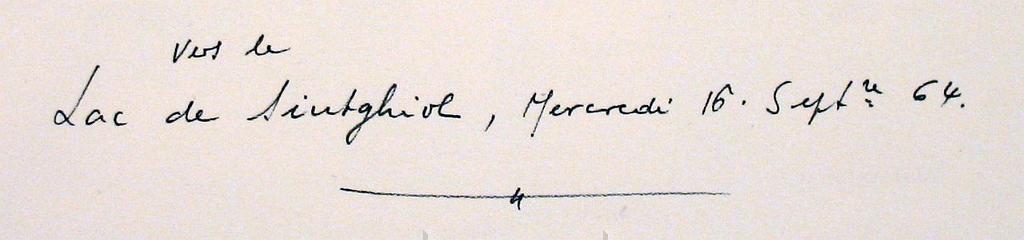 Vers le
Lac de Siutghiol, Mercredi 16. Septre 64.
4